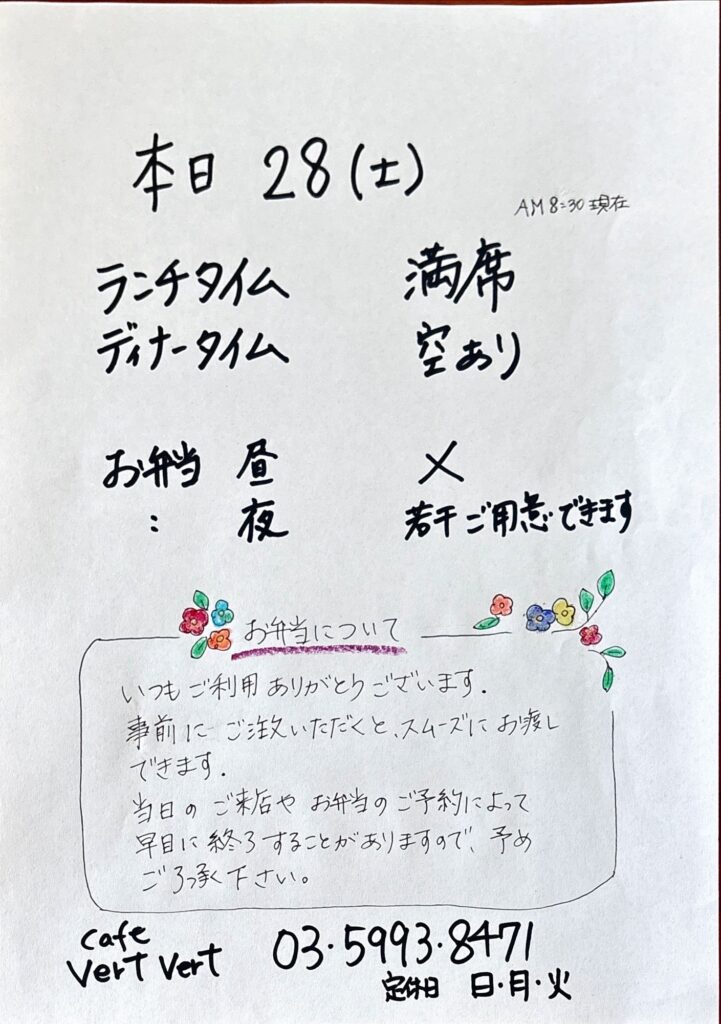 本日 28(土)
AM8:30現在
ランチタイム 満席
ディナータイム 空あり
お弁当 昼 ×
: 夜 若干ご用意できます
お弁当について
いつもご利用ありがとうございます.
事前にご注文いただくと、スムーズにお渡し
できます.
当日のご来店やお弁当のご予約によって
早目に終了することがありますので、予め
ご了承下さい。
cafe
Vert Vert
03・5993・8471
定休日 日・月・火